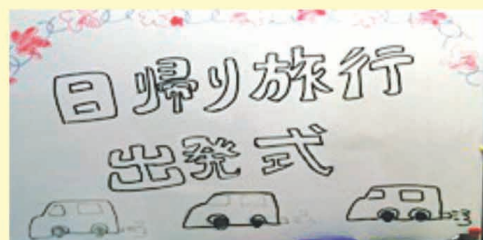 日帰り旅行
出発式